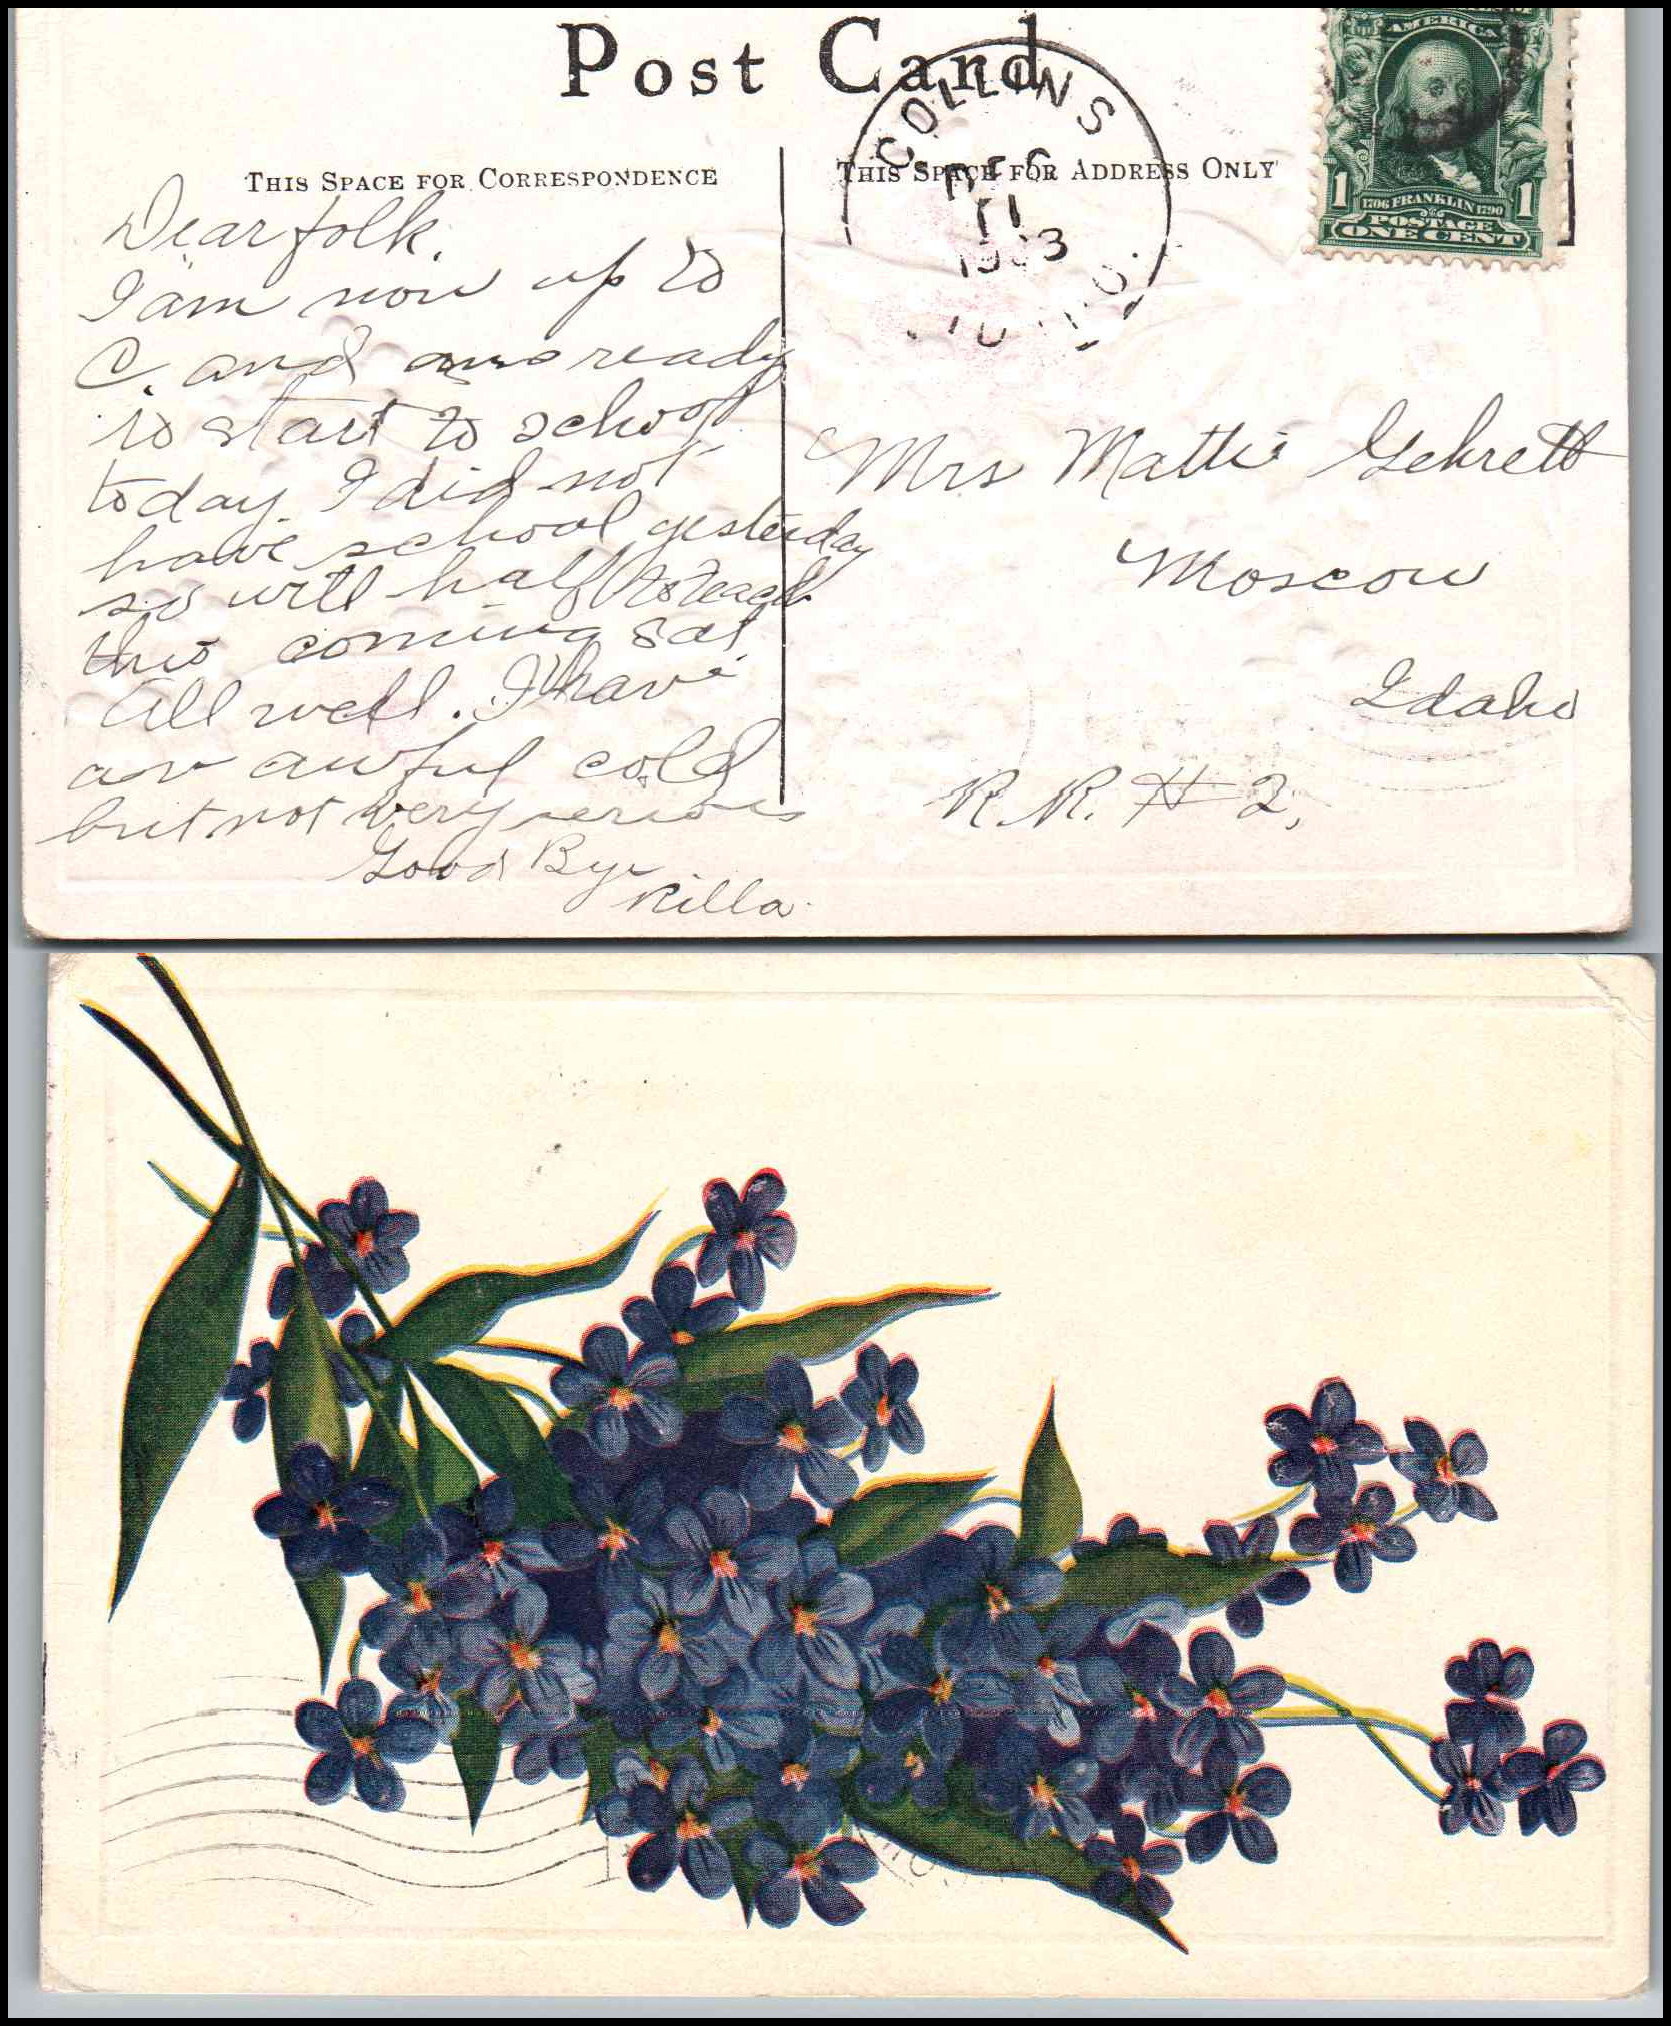 Post Card
COLLINS
DEC
11
IDAHO.
AMERICA
1 1706 FRANKLIN 1790 1
POSTAGE
ONE CENT
THIS SPACE FOR CORRESPONDENCE
THIS SPACE FOR ADDRESS ONLY
Dear folk.
I am now up to
C. and am ready
to start to school
today. I did not
have school yesterday
so will half to teach
this coming Sat.
All well. I have
an awful cold
but not very serious
Good Bye
Rilla.
Mrs Mattie Gehrett
Moscow
Idaho
R.R. # 2,